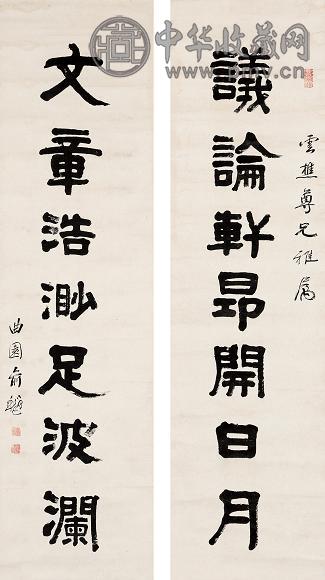 雲樵尊兄雅屬
議論軒昂開日月
文章浩渺足波瀾
曲園俞樾
中华收藏网